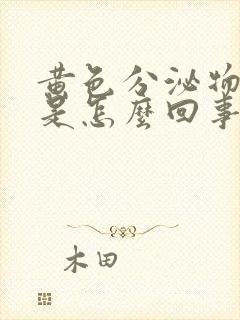 黄色分泌物
是怎麼回事
木田